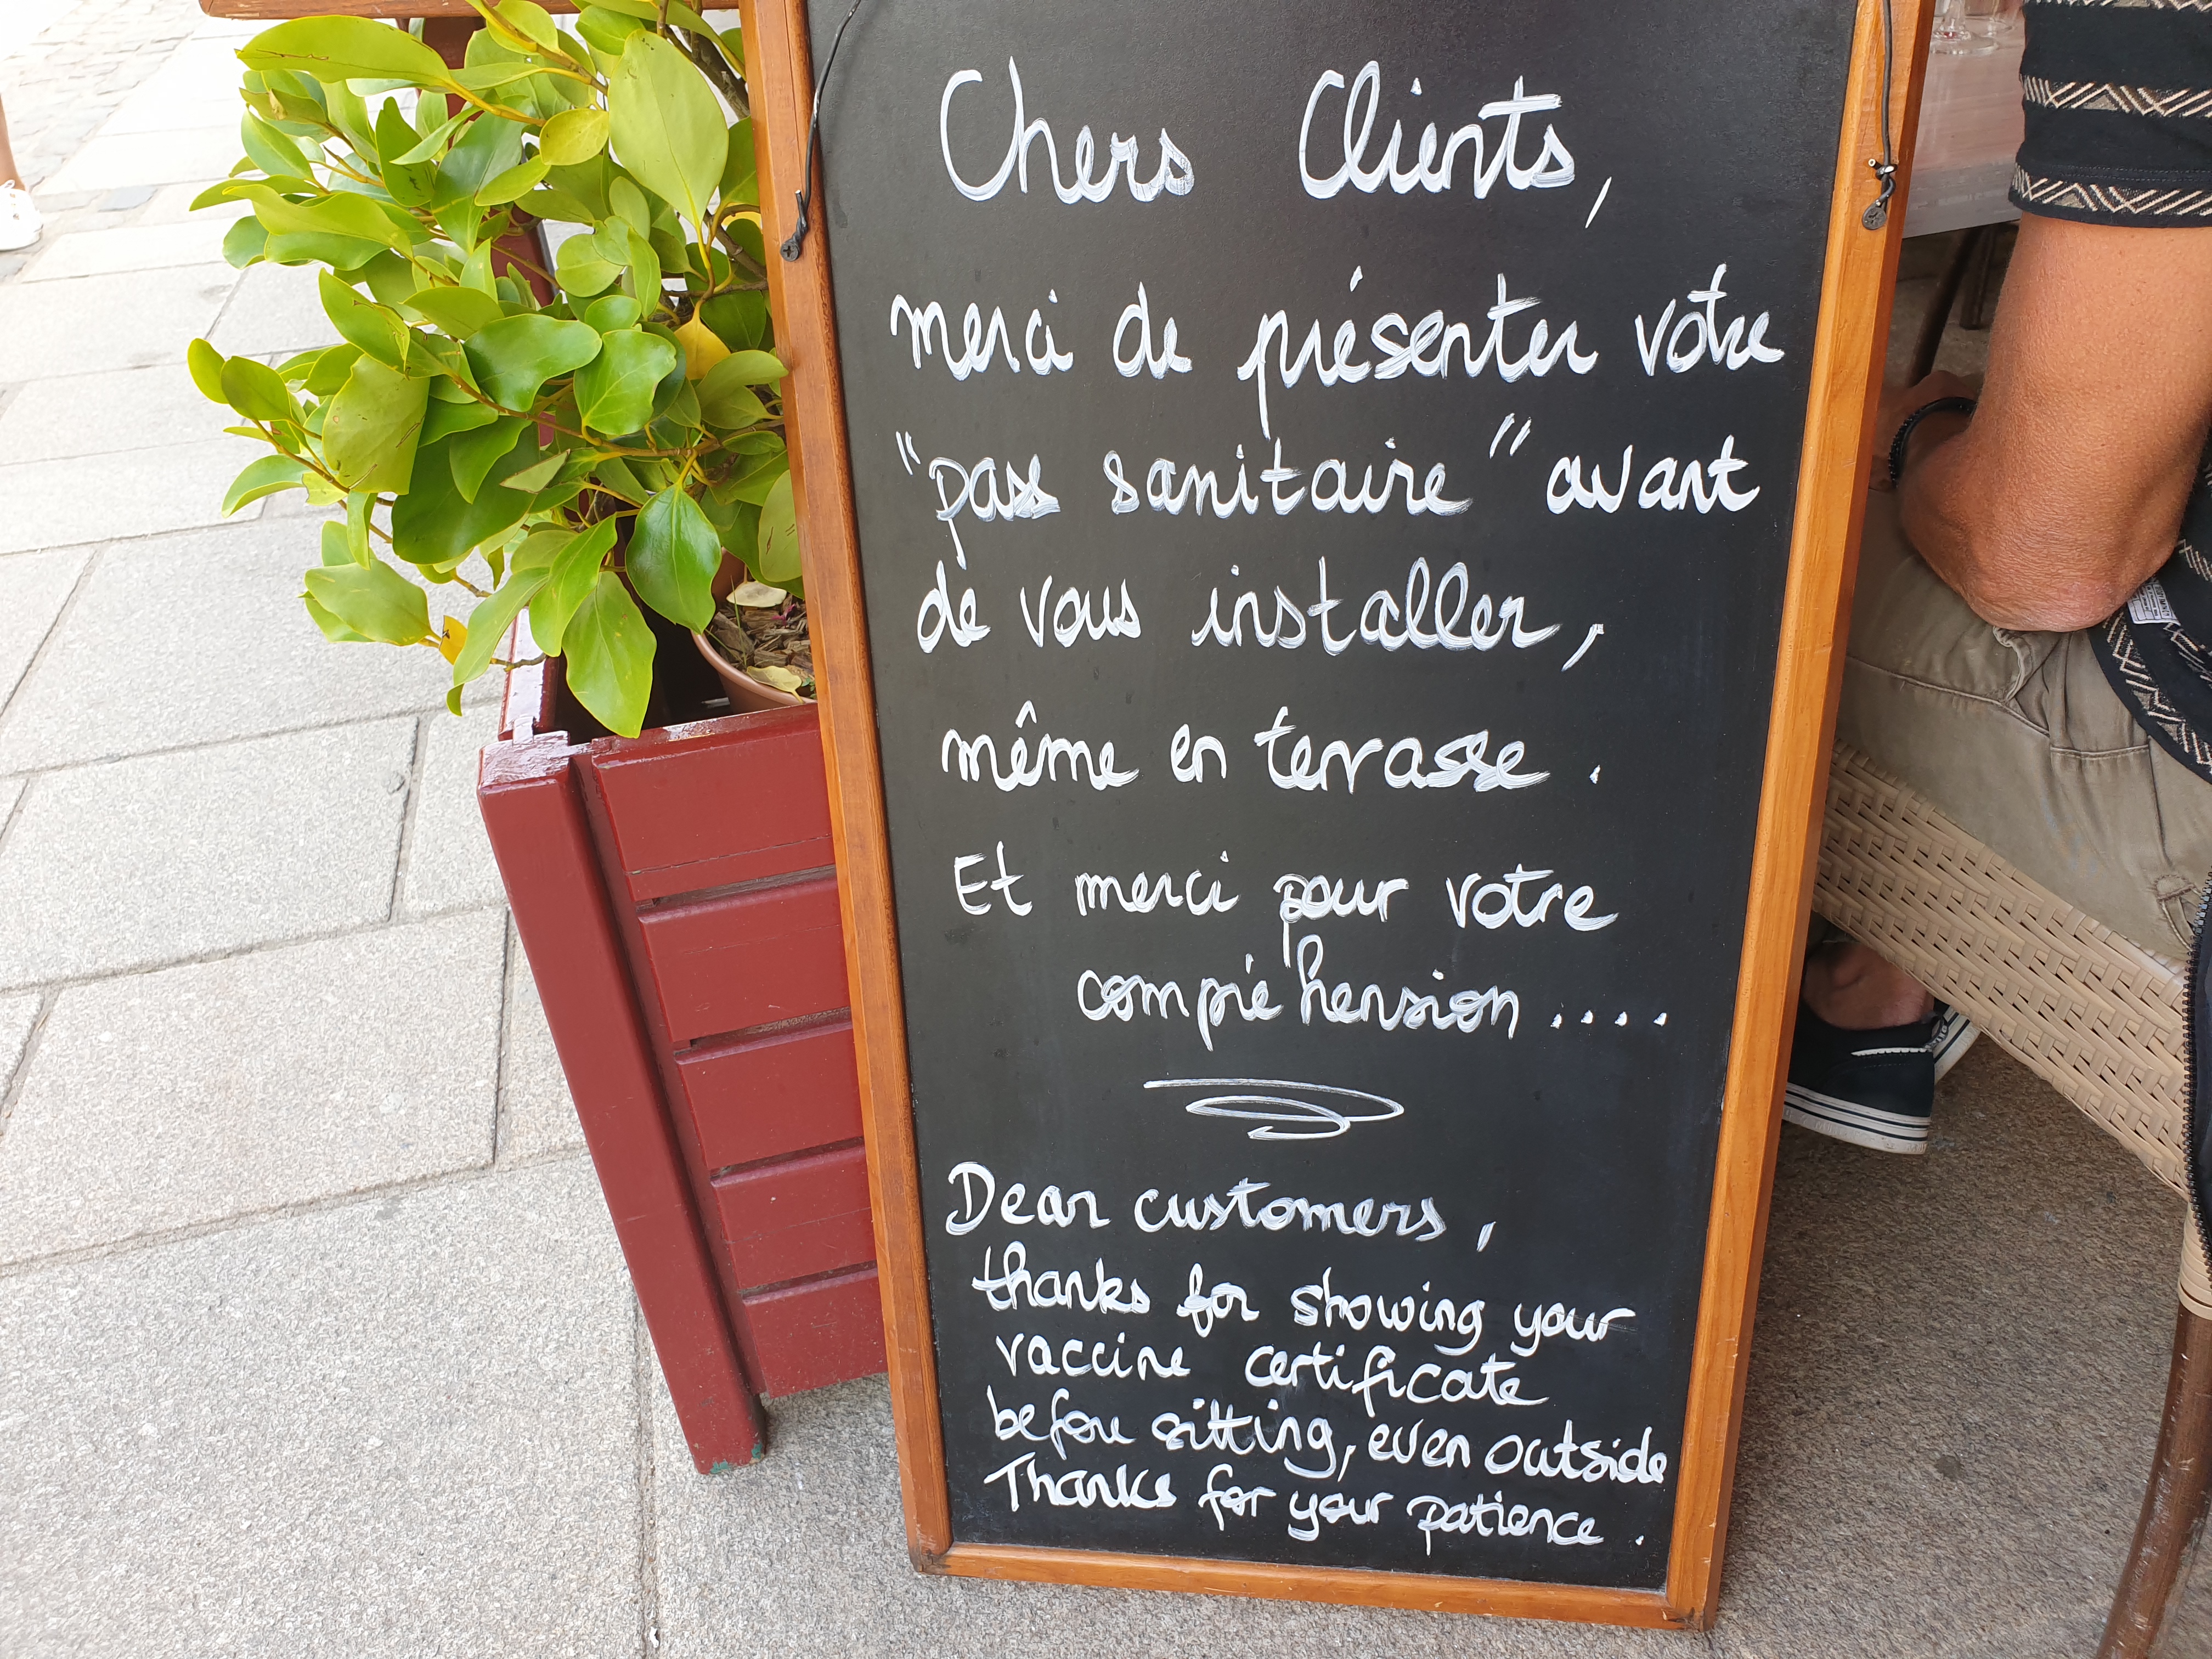 Chers Clients,
merci de présenter votre
"pass sanitaire" avant
de vous installer,
même en terrasse.
Et merci pour votre
compréhension....
Dear customers,
thanks for showing your
vaccine certificate
before sitting, even outside
Thanks for your patience.